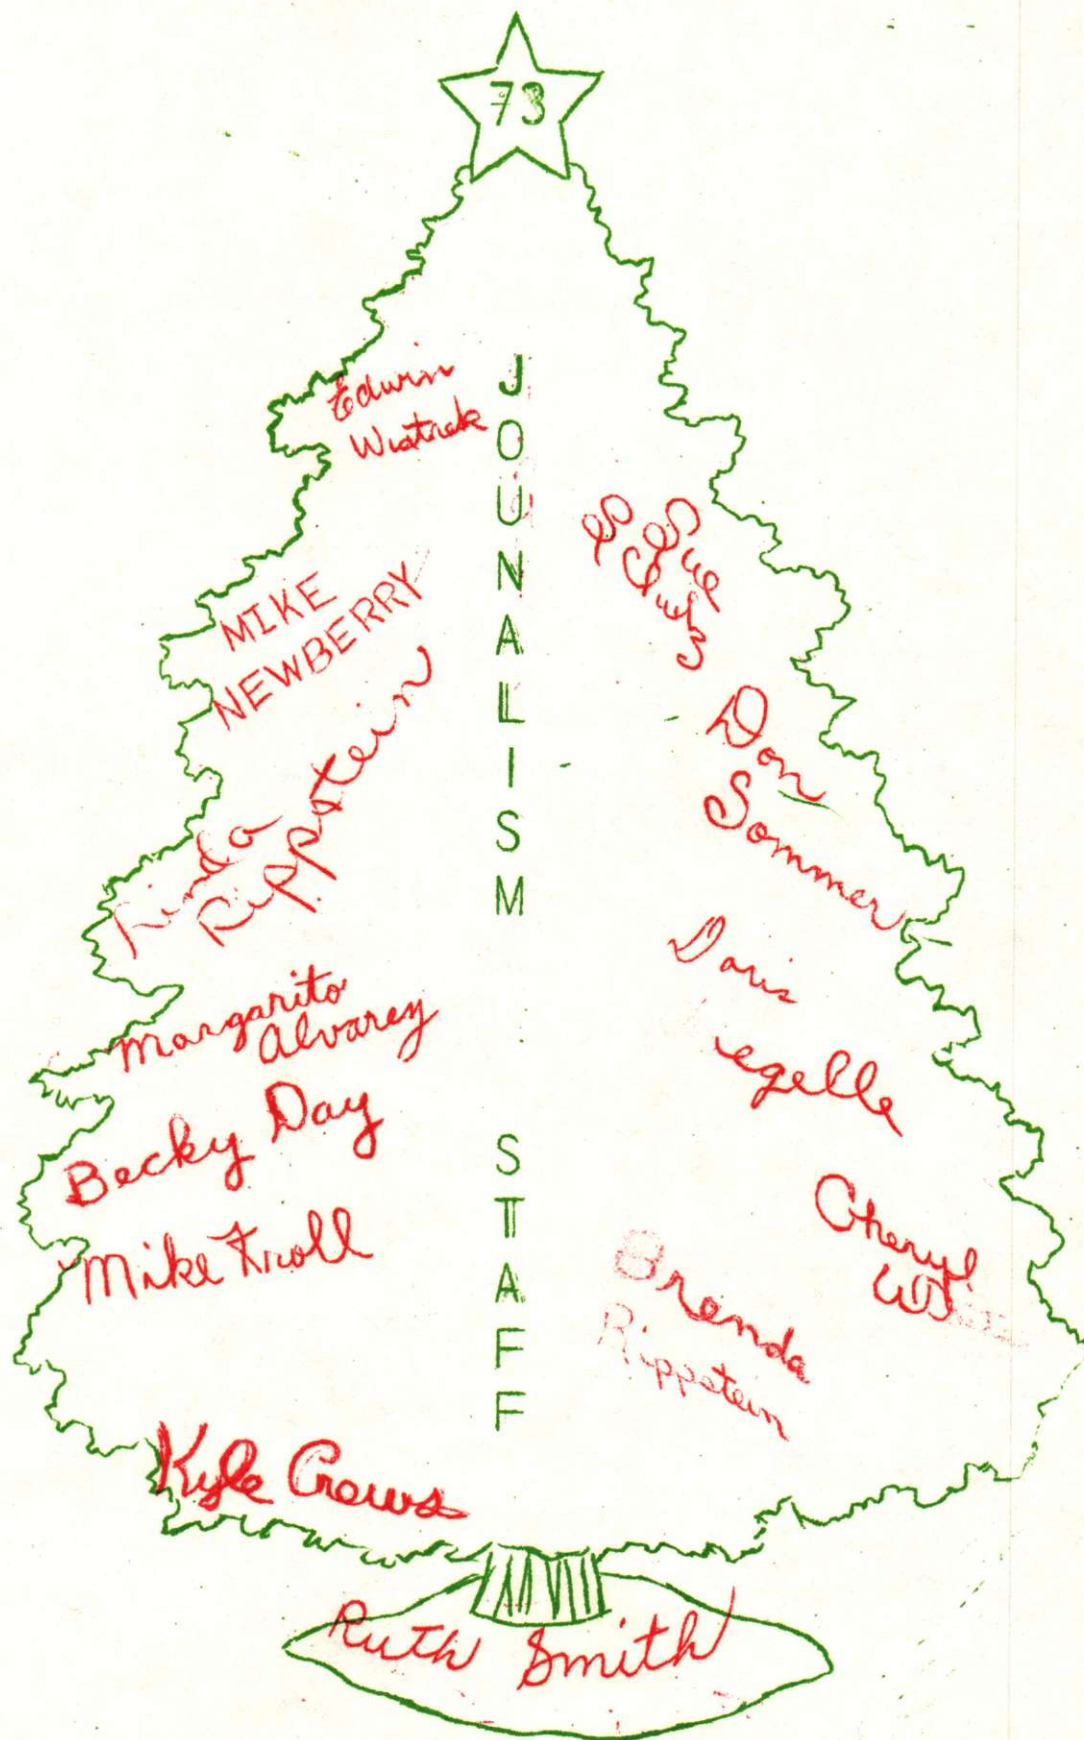 73
JOUNALISM STAFF
Edwin
MIKE
NEWBERRY
Linda
Rippstein
Margarito
Alvarez
Becky Day
Mike Kroll
Kyle Crews
Sue
Don
Sommer
Doris
egelle
Cheryl
Brenda
Rippstein
Ruth Smith